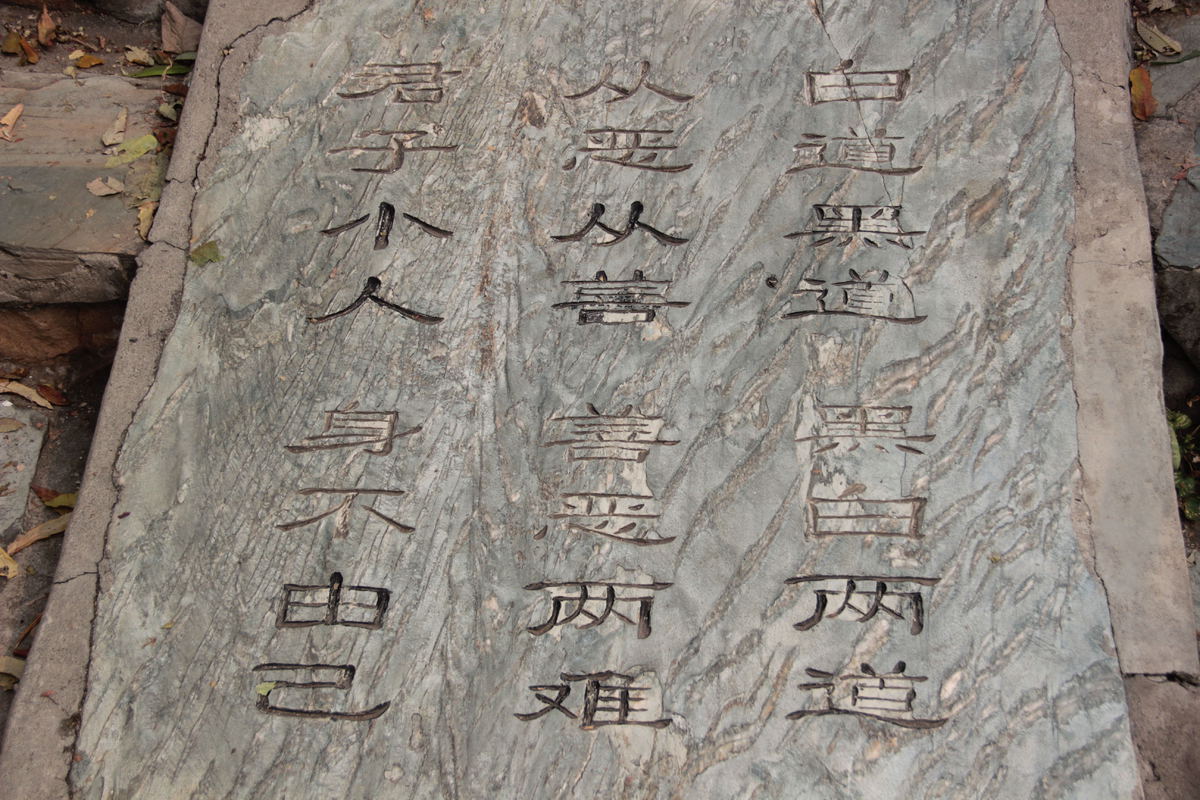 白道黑道 黑白两道
从恶从善 善恶两难
君子小人 身不由己